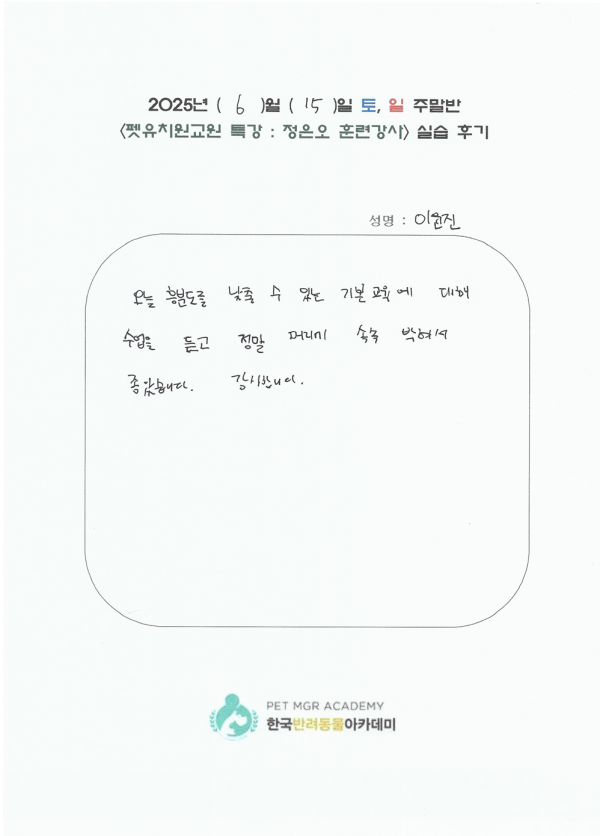 2025년 ( 6 )월 ( 15 )일 토, 일 주말반
<펫유치원교원 특강 : 정은오 훈련강사> 실습 후기
성명 : 이원진
오늘 흥분도를 낮출 수 있는 기본교육에 대해
수업을 듣고 정말 머리에 쏙쏙 박혀서
좋았습니다. 감사합니다.
PET MGR ACADEMY
한국반려동물아카데미